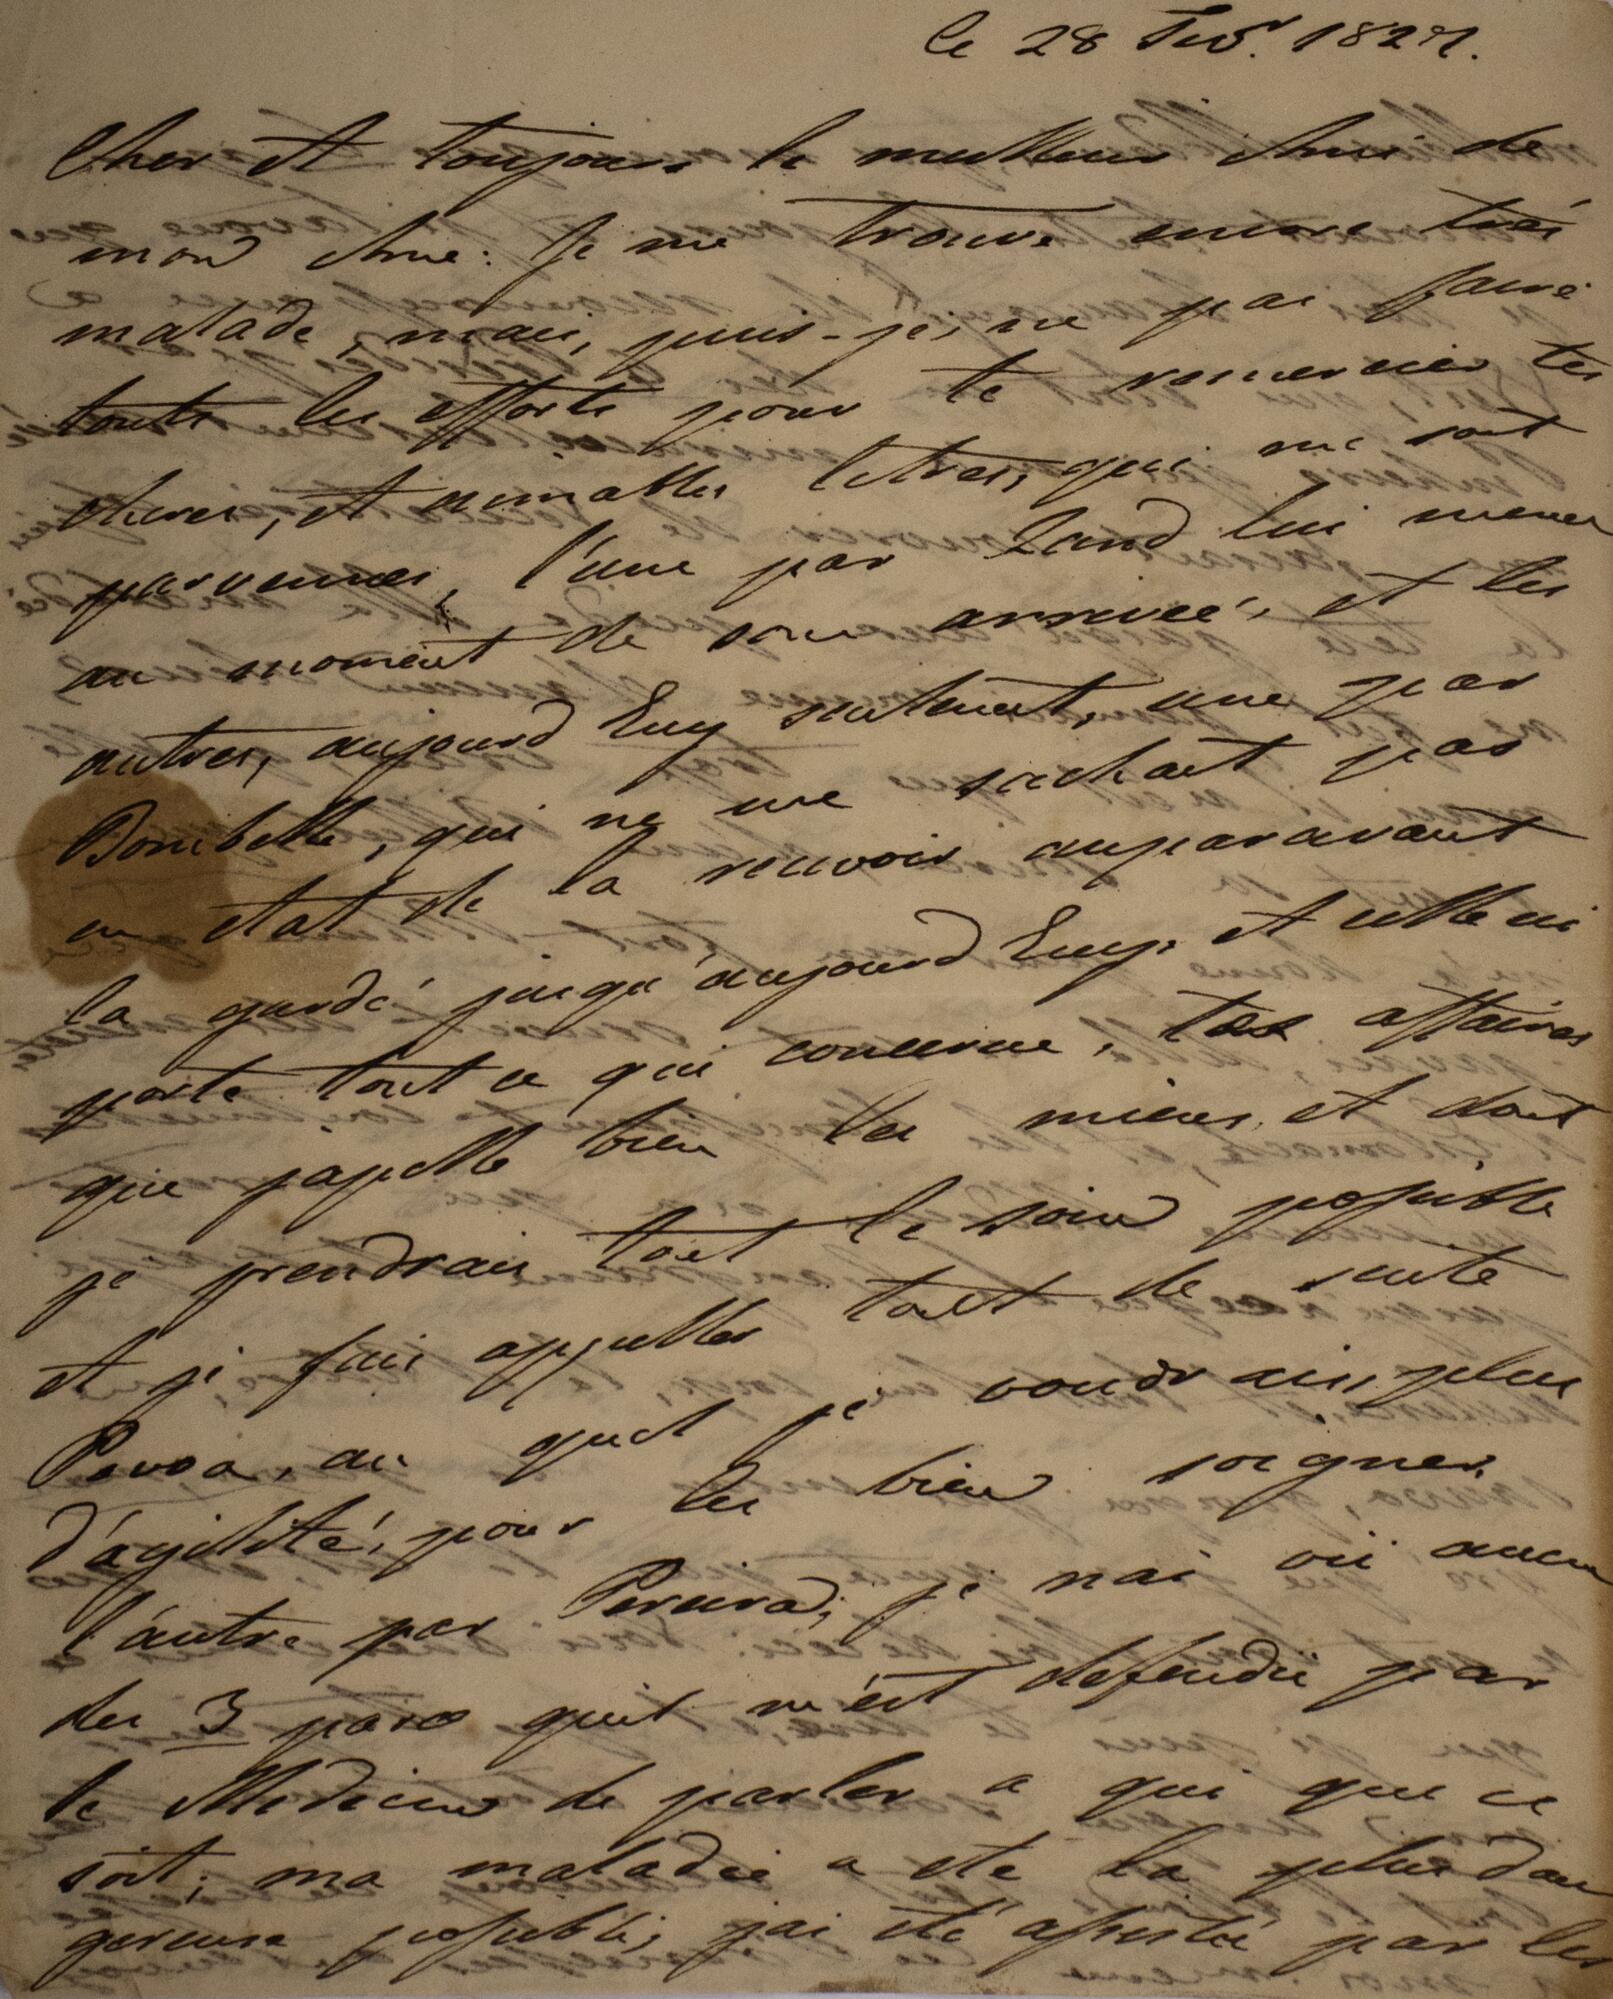 le 28 Fev. 1827.
Cher et toujours le meilleur Ami de
mon Ame: Je me trouve encore très
malade, mais, puis-je, ne pas faire
touts les efforts pour te remercier tes
cheres, et aimables lettres, qui me sont
parvenues, l'une par lui meme
au moment de son arriveé, et les
autres, aujourd huy seulement, une par
Bombelle, qui ne me sachant pas
en etat de la recevoir auparavant
la gardé jusqu'aujourd huy, et celle ci
porte tout ce qui concerne, tes affaires
que japelle bien les mienes, et dont
je prendrais tout le soin possible
et je fais appeller tout de suite
Povoa, au quel je voudrais, plus
d'agilité, pour les bien soigner,
l'autre par Pereira, je nai vu aucun
des 3 parce quil m'est defendu par
le Medecin de parler a qui que ce
soit, ma maladie a ete la plus dan
gereuse possible, jai été assistée par les